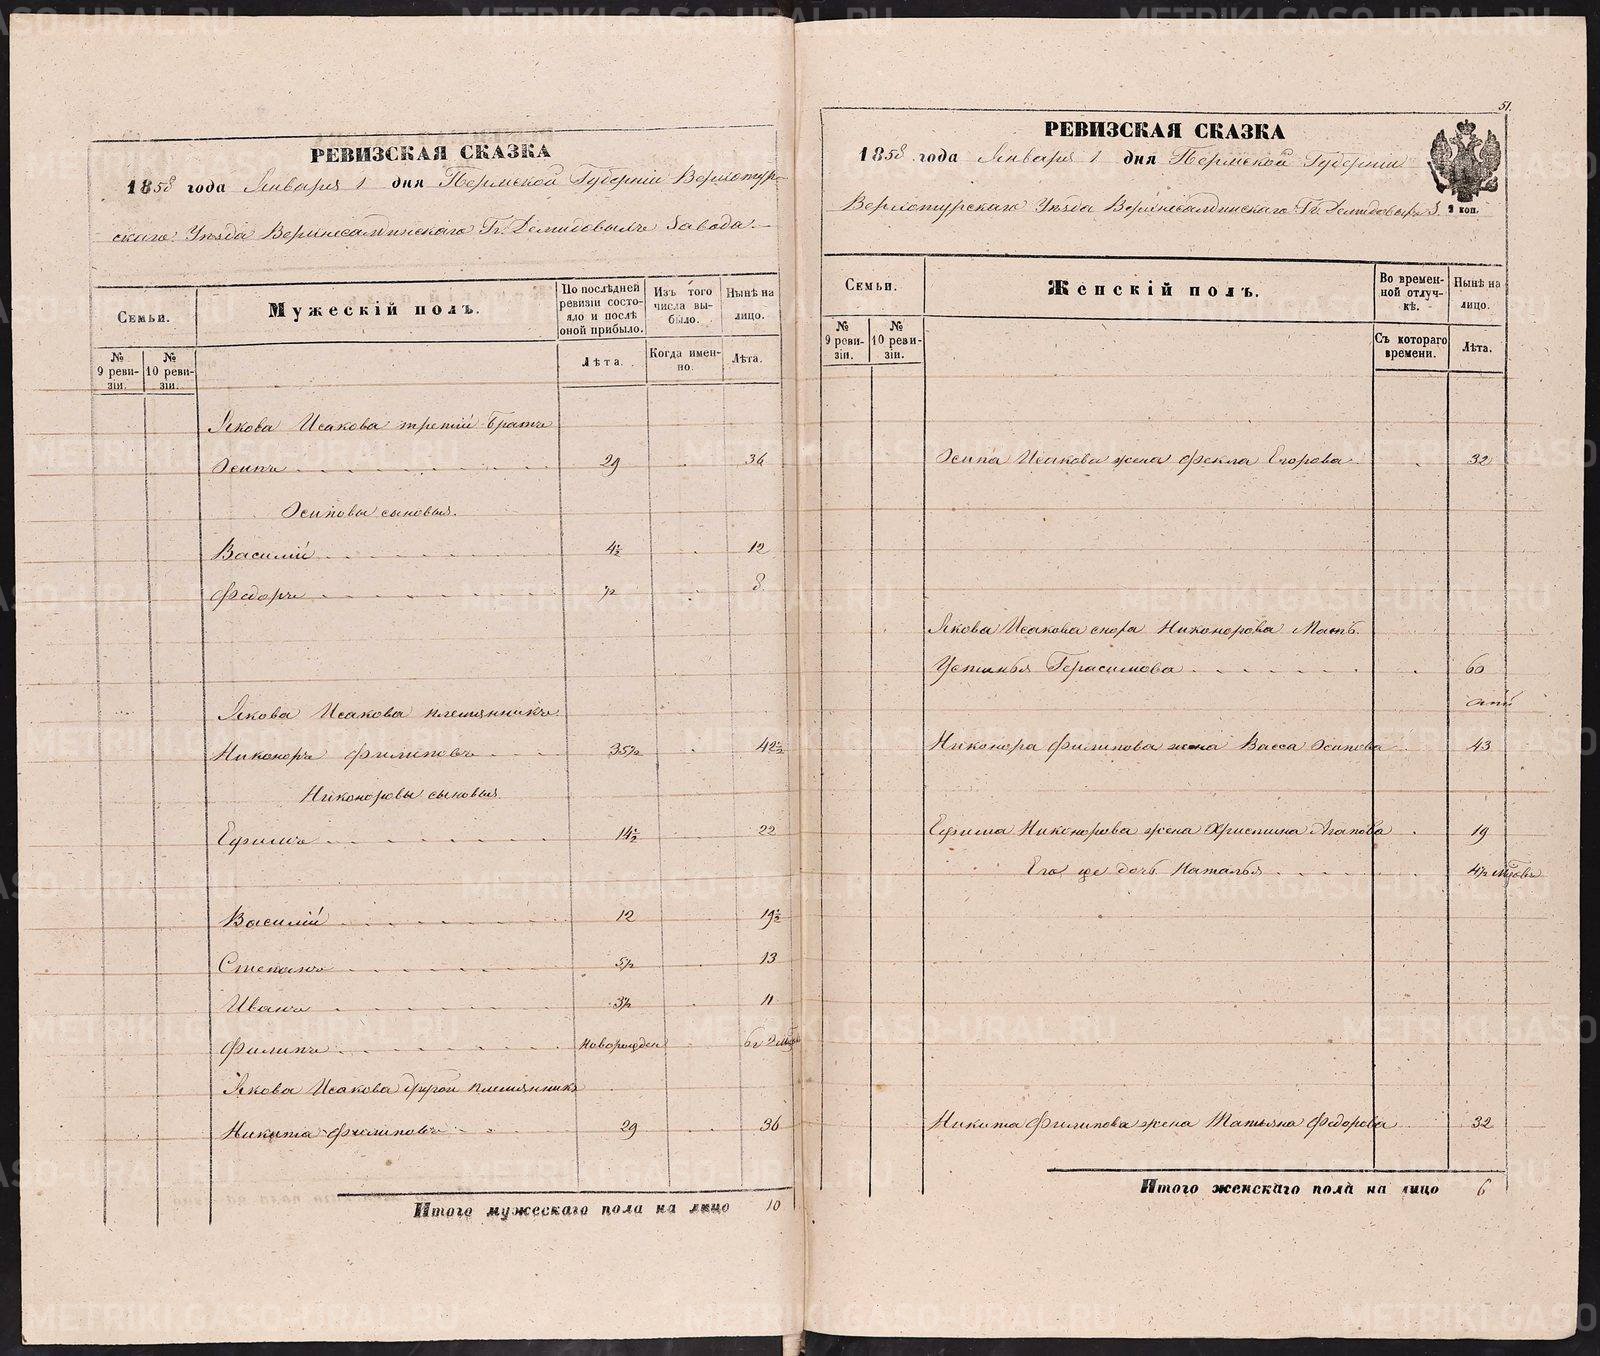 РЕВИЗСКАЯ СКАЗКА
1858 года Января 1 дня Пермской Губерніи Верхотур-
скаго Уѣзда Верхнесалдинскаго Гг. Демидовыхъ Завода.
Семьи.
Мужескій полъ.
По послѣдней ревизіи состояло и послѣ оной прибыло.
Изъ того числа выбыло.
Нынѣ на лицо.
№ 9 ревизіи.
№ 10 ревизіи.
Лѣта.
Когда именно.
Лѣта.
Якова Исакова третій Братъ
Осипъ 29 36
Осиповы сыновья.
Василій 4½ 12
Федоръ ½ 8
Якова Исакова племянникъ
Никоноръ Филиповъ 35½ 42½
Никоноровы сыновья
Ефимъ 14½ 22
Василій 12 19½
Степанъ 5½ 13
Иванъ 3½ 11
Филипъ новорожден 6г 2
Якова Исакова другой племянникъ
Никита Филиповъ 29 36
Итого мужескаго пола на лицо 10
51.
РЕВИЗСКАЯ СКАЗКА
1858 года Января 1 дня Пермской Губерніи
Верхотурскаго Уѣзда Верхнесалдинскаго Гг. Демидовыхъ З.
2 коп.
Семьи.
Женскій полъ.
Во временной отлучкѣ.
Нынѣ на лицо.
№ 9 ревизіи.
№ 10 ревизіи.
Съ котораго времени.
Лѣта.
Осипа Исакова жена Фекла Егорова 32
Якова Исакова Никонорова Мать
Устинья Герасимова 60
Никонора Филипова жена Васса Осипова 43
Ефима Никонорова жена Христина Агапова 19
Его же дочь Наталья 4½
Никита Филипова жена Татьяна Федорова 32
Итого женскаго пола на лицо 6